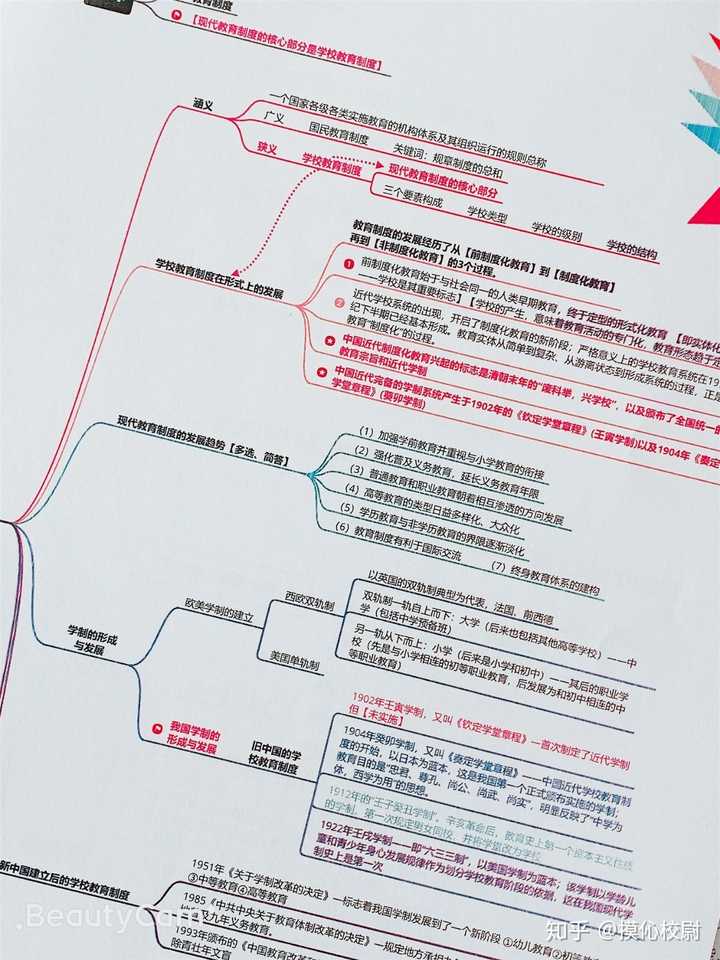 教育制度
【现代教育制度的核心部分是学校教育制度】
涵义
广义
一个国家各级各类实施教育的机构体系及其组织运行的规则总称
国民教育制度
关键词：规章制度的总和
狭义
学校教育制度
现代教育制度的核心部分
三个要素构成
学校类型
学校的级别
学校的结构
学校教育制度在形式上的发展
教育制度的发展经历了从【前制度化教育】到【制度化教育】
再到【非制度化教育】的3个过程。
1 前制度化教育始于与社会同一的人类早期教育，终于定型的形式化教育 【即实体化
——学校是其重要标志】【学校的产生，意味着教育活动的专门化，教育形态趋于定
2 近代学校系统的出现，开启了制度化教育的新阶段；严格意义上的学校教育系统在19
纪下半期已经基本形成。教育实体从简单到复杂、从游离状态到形成系统的过程，正是
教育“制度化”的过程。
中国近代制度化教育兴起的标志是清朝末年的“废科举，兴学校”，以及颁布了全国统一的
教育宗旨和近代学制
中国近代完备的学制系统产生于1902年的《钦定学堂章程》(壬寅学制)以及1904年《奏定
学堂章程》(癸卯学制)
现代教育制度的发展趋势【多选、简答】
（1）加强学前教育并重视与小学教育的衔接
（2）强化普及义务教育，延长义务教育年限
（3）普通教育和职业教育朝着相互渗透的方向发展
（4）高等教育的类型日益多样化、大众化
（5）学历教育与非学历教育的界限逐渐淡化
（6）教育制度有利于国际交流
（7）终身教育体系的建构
学制的形成
与发展
欧美学制的建立
西欧双轨制
以英国的双轨制典型为代表，法国、前西德
双轨制一轨自上而下：大学（后来也包括其他高等学校）——中
学（包括中学预备班）
另一轨从下而上：小学（后来是小学和初中）——其后的职业学
校（先是与小学相连的初等职业教育，后发展为和初中相连的中
等职业教育）
美国单轨制
我国学制的
形成与发展
旧中国的学
校教育制度
1902年壬寅学制，又叫《钦定学堂章程》—首次制定了近代学制
但【未实施】
1904年癸卯学制，又叫《奏定学堂章程》——中国近代学校教育制
度的开始，以日本为蓝本，这是我国第一个正式颁布实施的学制；
教育目的是“忠君、尊孔、尚公、尚武、尚实”，明显反映了“中学为
体，西学为用”的思想。
1912年的“壬子癸丑学制”，辛亥革命后，教育史上第一个资本主义性质
的学制。第一次规定男女同校，并将学堂改为学校
1922年壬戌学制——即“六三三制”，以美国学制为蓝本；该学制以学龄儿
童和青少年身心发展规律作为划分学校教育阶段的依据，这在我国现代学
制史上是第一次
新中国建立后的学校教育制度
1951年《关于学制改革的决定》—标志着我国学制发展到了一个新阶段 ①幼儿教育②初等教
③中等教育④高等教育
1985《中共中央关于教育体制改革的决定》—规定地方承担
及九年义务教育。
1993年颁布的《中国教育改革和
除青壮年文盲
BeautyCam
知乎 @模化校尉